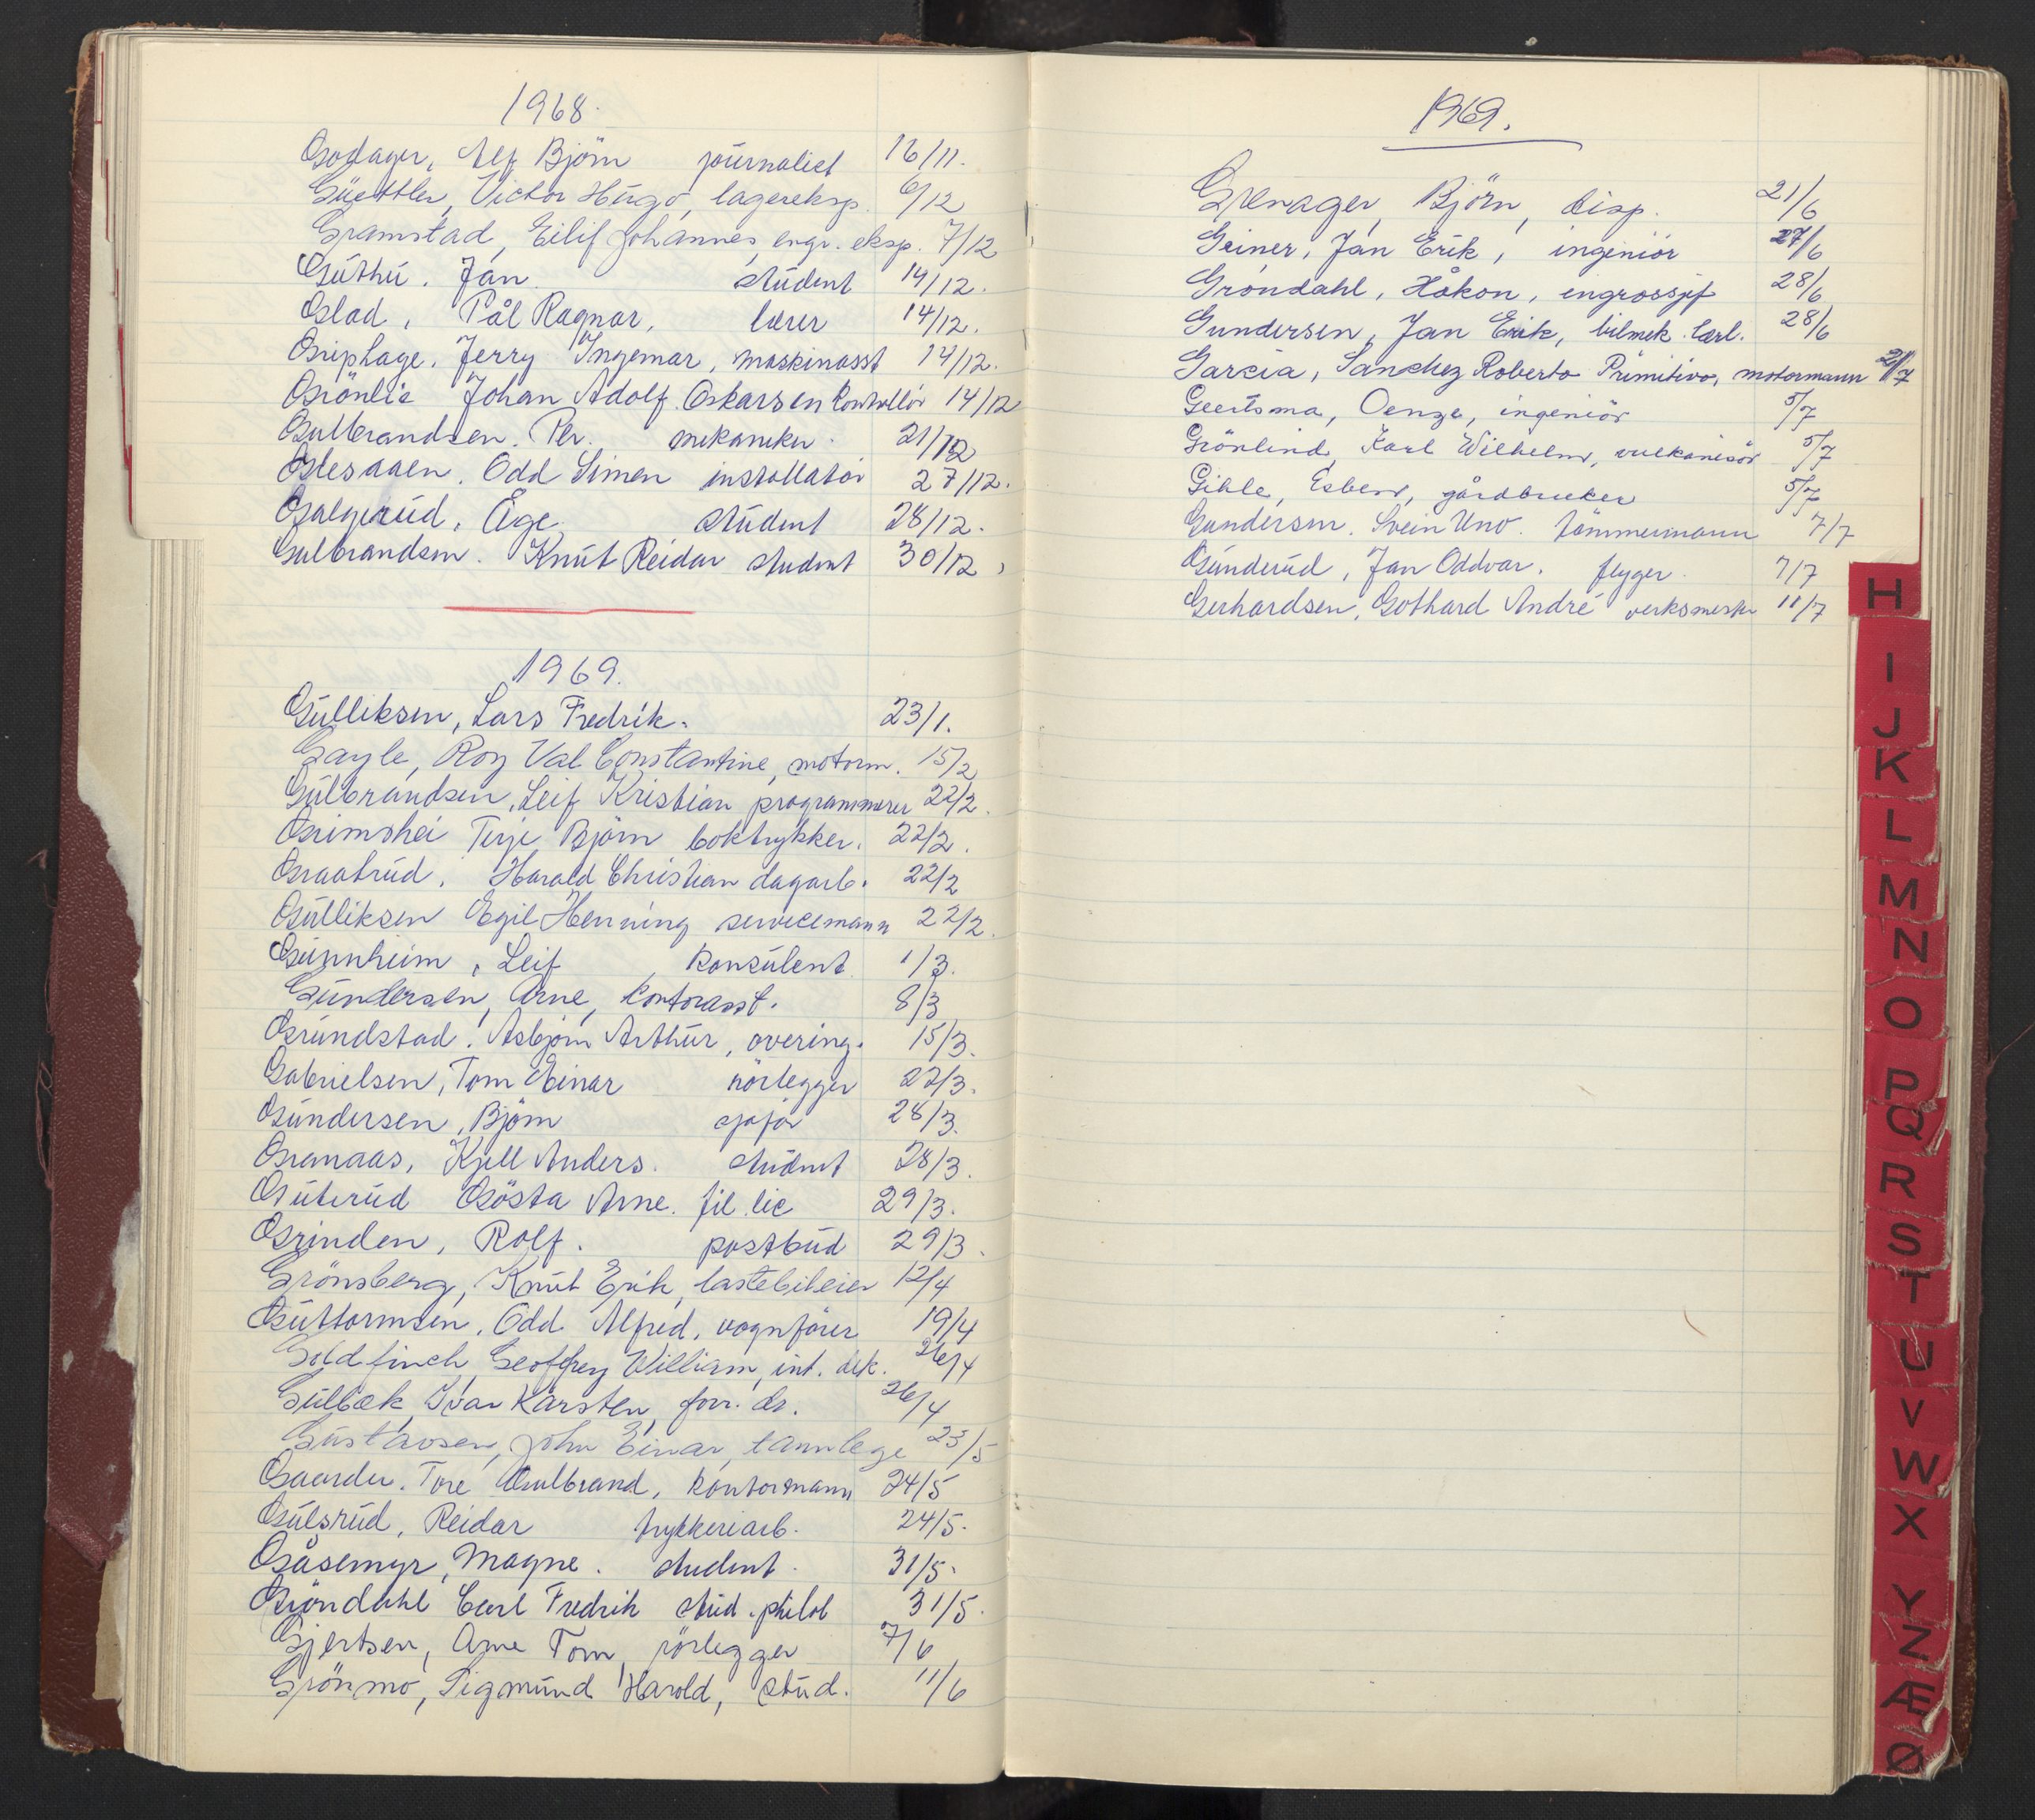 1968.
Godager, Alf Björn journalist 16/11.
Güettler, Victor Hugo, lagereksp. 6/12
Gramstad, Eilif Johannes, engr. eksp. 7/12
Guthu. Jan. student 14/12.
Glad, Pål Ragnar, lærer 14/12.
Griphage, Jerry Ingemar, maskinasst 14/12.
Grönlie Johan Adolf Oskarsen kontrollör 14/12
Gulbrandsen. Per. mekaniker. 21/12
Glesaaen. Odd Simen installatör 27/12.
Galgerud, Åge student 28/12.
Gulbrandsen. Knut Reidar student 30/12,
1969.
Gulliksen, Lars Fredrik. 23/1.
Gayle, Roy Val Constantine, motorm. 15/2
Gulbrandsen, Leif Kristian programmerer 22/2.
Grimshei Terje Björn boktrykker. 22/2.
Graatrud, Harald Christian dagarb. 22/2
Gulliksen Egil Henning servicemann 22/2.
Gunnheim, Leif, konsulent 1/3.
Gundersen, Arne, kontorasst. 8/3
Grundstad. Asbjörn Arthur, overing. 15/3.
Gabrielsen, Tom Einar rörlegger 22/3.
Gundersen, Björn sjåför 28/3.
Granaas, Kjell Anders. student 28/3.
Guterud Gösta Arne. fil. lic 29/3.
Grinden, Rolf. postbud 29/3.
Grönsberg, Knut Erik, lastebileier 12/4
Guttormsen, Odd Alfred, vognförer 19/4
Goldfinch, Geoffrey William, int. ark. 26/4
Gulbæk, Ivar Karsten, forr. dr. 26/4
Gustavsen, John Einar, tannlege 23/5
Gaarder. Tore Gulbrand, kontormann 24/5
Gulsrud, Reidar trykkeriarb. 24/5.
Gåsemyr, Magne. student. 31/5.
Gröndahl Carl Fredrik stud. philol 31/5.
Gjertsen, Arne Tom, rörlegger 7/6
Grönmo, Sigmund Harold, stud. 11/6
1969.
Grenager, Björn, disp. 21/6
Geiner, Jan Erik, ingeniör 27/6
Gröndahl, Håkon, engrossjef 28/6
Gundersen, Jan Erik, bilmek. lærl. 28/6
Garcia, Sanchez Roberto Primitivo, motormann 2/7
Geertsma, Oenze, ingeniör 5/7
Grönlind, Karl Wilhelm, vulkanisör 5/7
Gihle, Esbern, gårdbruker 5/7
Gundersen. Svein Uno. tömmermann 7/7
Gunderud, Jan Oddvar. flyger. 7/7
Gerhardsen, Gothard André verksmester 11/7
H
I
J
K
L
M
N
O
P
Q
R
S
T
U
V
W
X
Y
Z
Æ
Ø